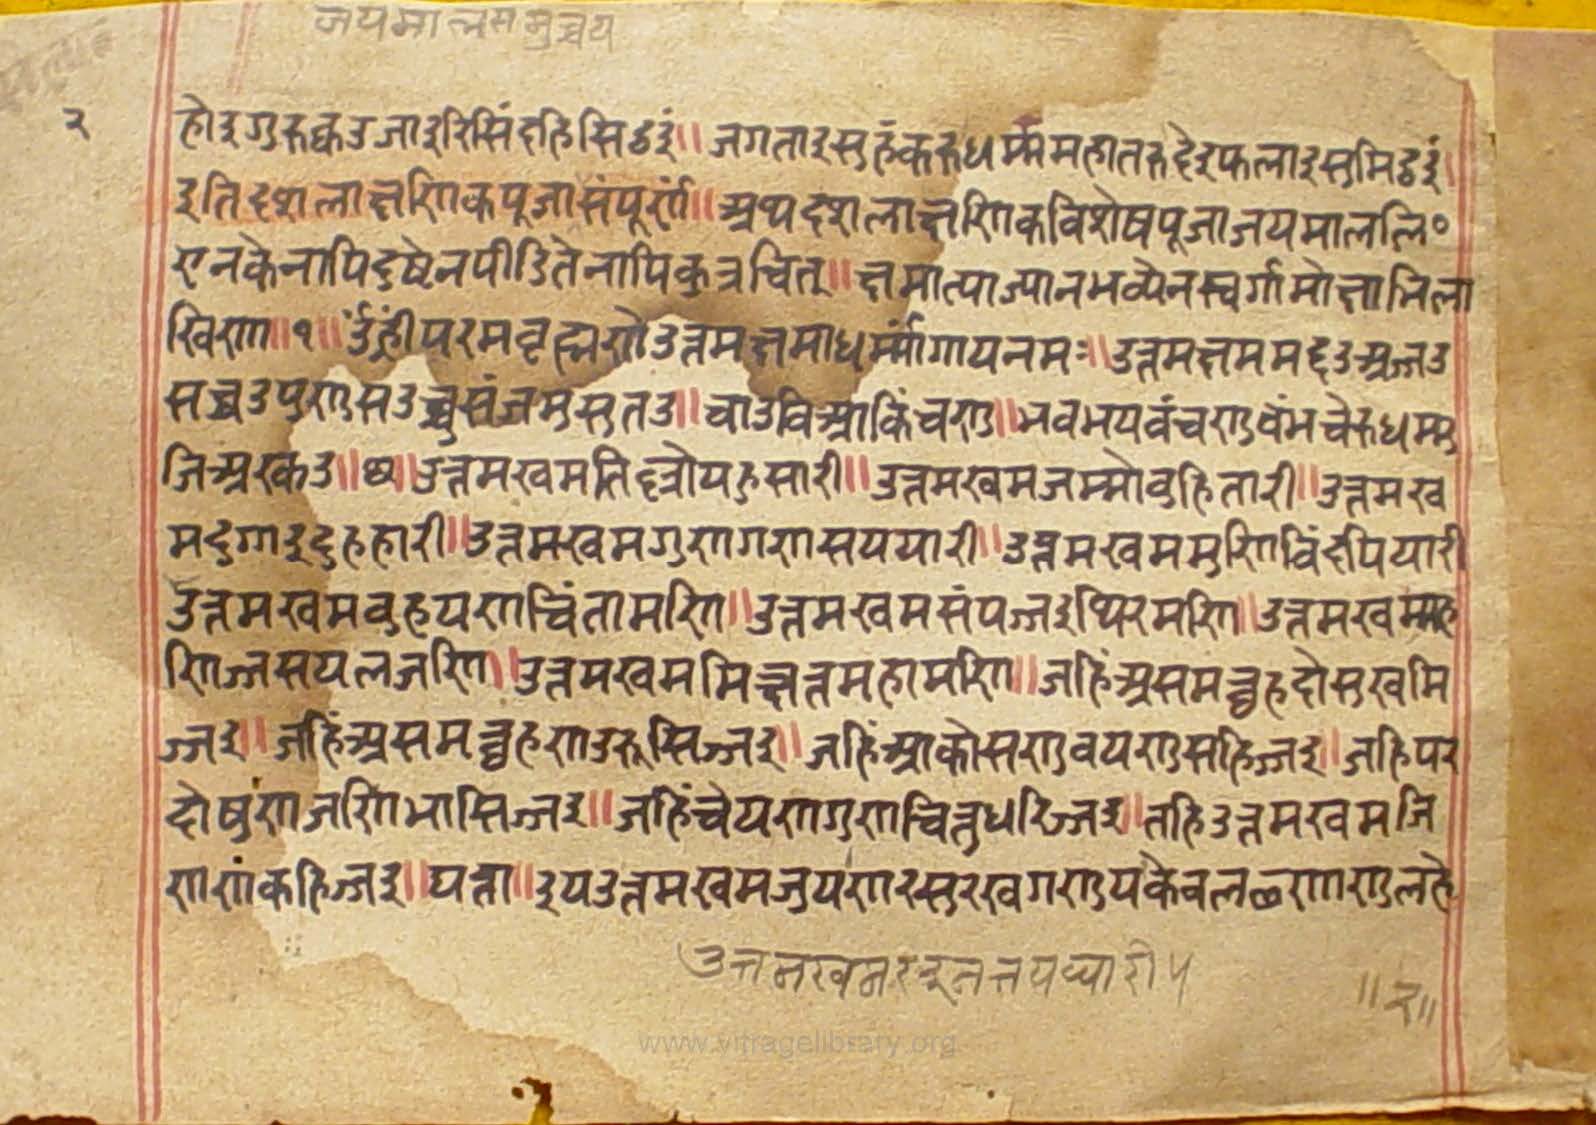 जयमालसमुच्चय
२
होइगुरुक्कउजाइरिसिंदहिसिठइं॥जगताइसुहंकरुधम्ममहातरुदेइफलाइसुमिठइं॥
इतिदशलाक्षणिकपूजासंपूर्णं॥अथदशलाक्षणिकविशेषपूजाजयमाललि॰
एनकेनापिदुष्टेनपीडितेनापिकुत्रचित्॥क्षमात्याज्यानभव्येनस्वर्गामोक्षाभिला
खिणा॥१॥उँह्रींपरमब्रह्मणेउत्तमक्षमाधर्म्मांगायनमः॥उत्तमक्षममद्दउअज्जउ
सच्चउपुणुसउच्चुसंजमुसुतउ॥चाउविआकिंचणु॥भवभयवंचणुबंभचेरुधम्मु
जिअखउ॥छ॥उत्तमखमतिहुत्रोयहसारी॥उत्तमखमजम्मोवुहितारी॥उत्तमख
मदुगाइदुहहारी॥उत्तमखमगुणगणसययारी॥उत्तमखममुणिविंदपियारी
उत्तमखमवुहयणचिंतामणि॥उत्तमखमसंपज्जइथिरमणि॥उत्तमखममह
णिज्जसयलजणि॥उत्तमखममिच्छत्तमहामणि॥जहिंअसमच्छहदोसुखमि
ज्जइ॥जहिंअसमच्छहणउरूसिज्जइ॥जहिंआकोसणुवयणुसहिज्जइ॥जहिपर
दोषुंणजणिभासिज्जइ॥जहिंचेयणगुणचित्तुधरिज्जइ॥तहिउत्तमखमजि
णणंकहिज्जइ॥घत्ता॥इयउत्तमखमजुयणरसुरखगणुयकेवलणाणुलहे
उत्तमखमरइनत्तयधारी५
॥२॥
www.vitragelibrary.org